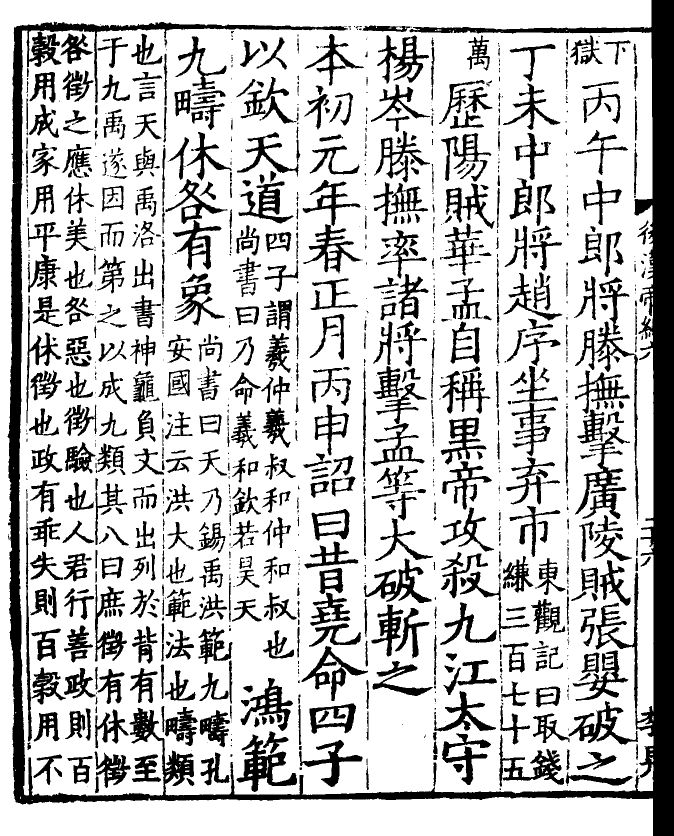 下獄丙午中郎將滕撫擊廣陵賊張嬰破之
丁未中郎將趙序坐事弃市東觀記曰取錢縑三百七十五
萬歷陽賊華孟自稱黑帝攻殺九江太守
楊岑滕撫率諸將擊孟等大破斬之
本初元年春正月丙申詔曰昔堯命四子
以欽天道四子謂羲仲羲叔和仲和叔也尚書曰乃命羲和欽若昊天鴻範
九疇休咎有象尚書曰天乃錫禹洪範九疇孔安國注云洪大也範法也疇類
也言天與禹洛出書神龜負文而出列於背有數至
于九禹遂因而第之以成九類其八曰庶徵有休徵
咎徵之應休美也咎惡也徵驗也人君行善政則百
穀用成家用平康是休徵也政有乖失則百穀用不